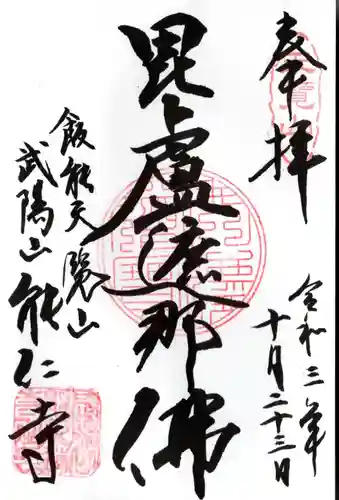 奉拝
令和三年
十月二十三日
毘盧遮那佛
飯能天覧山
武陽山能仁寺